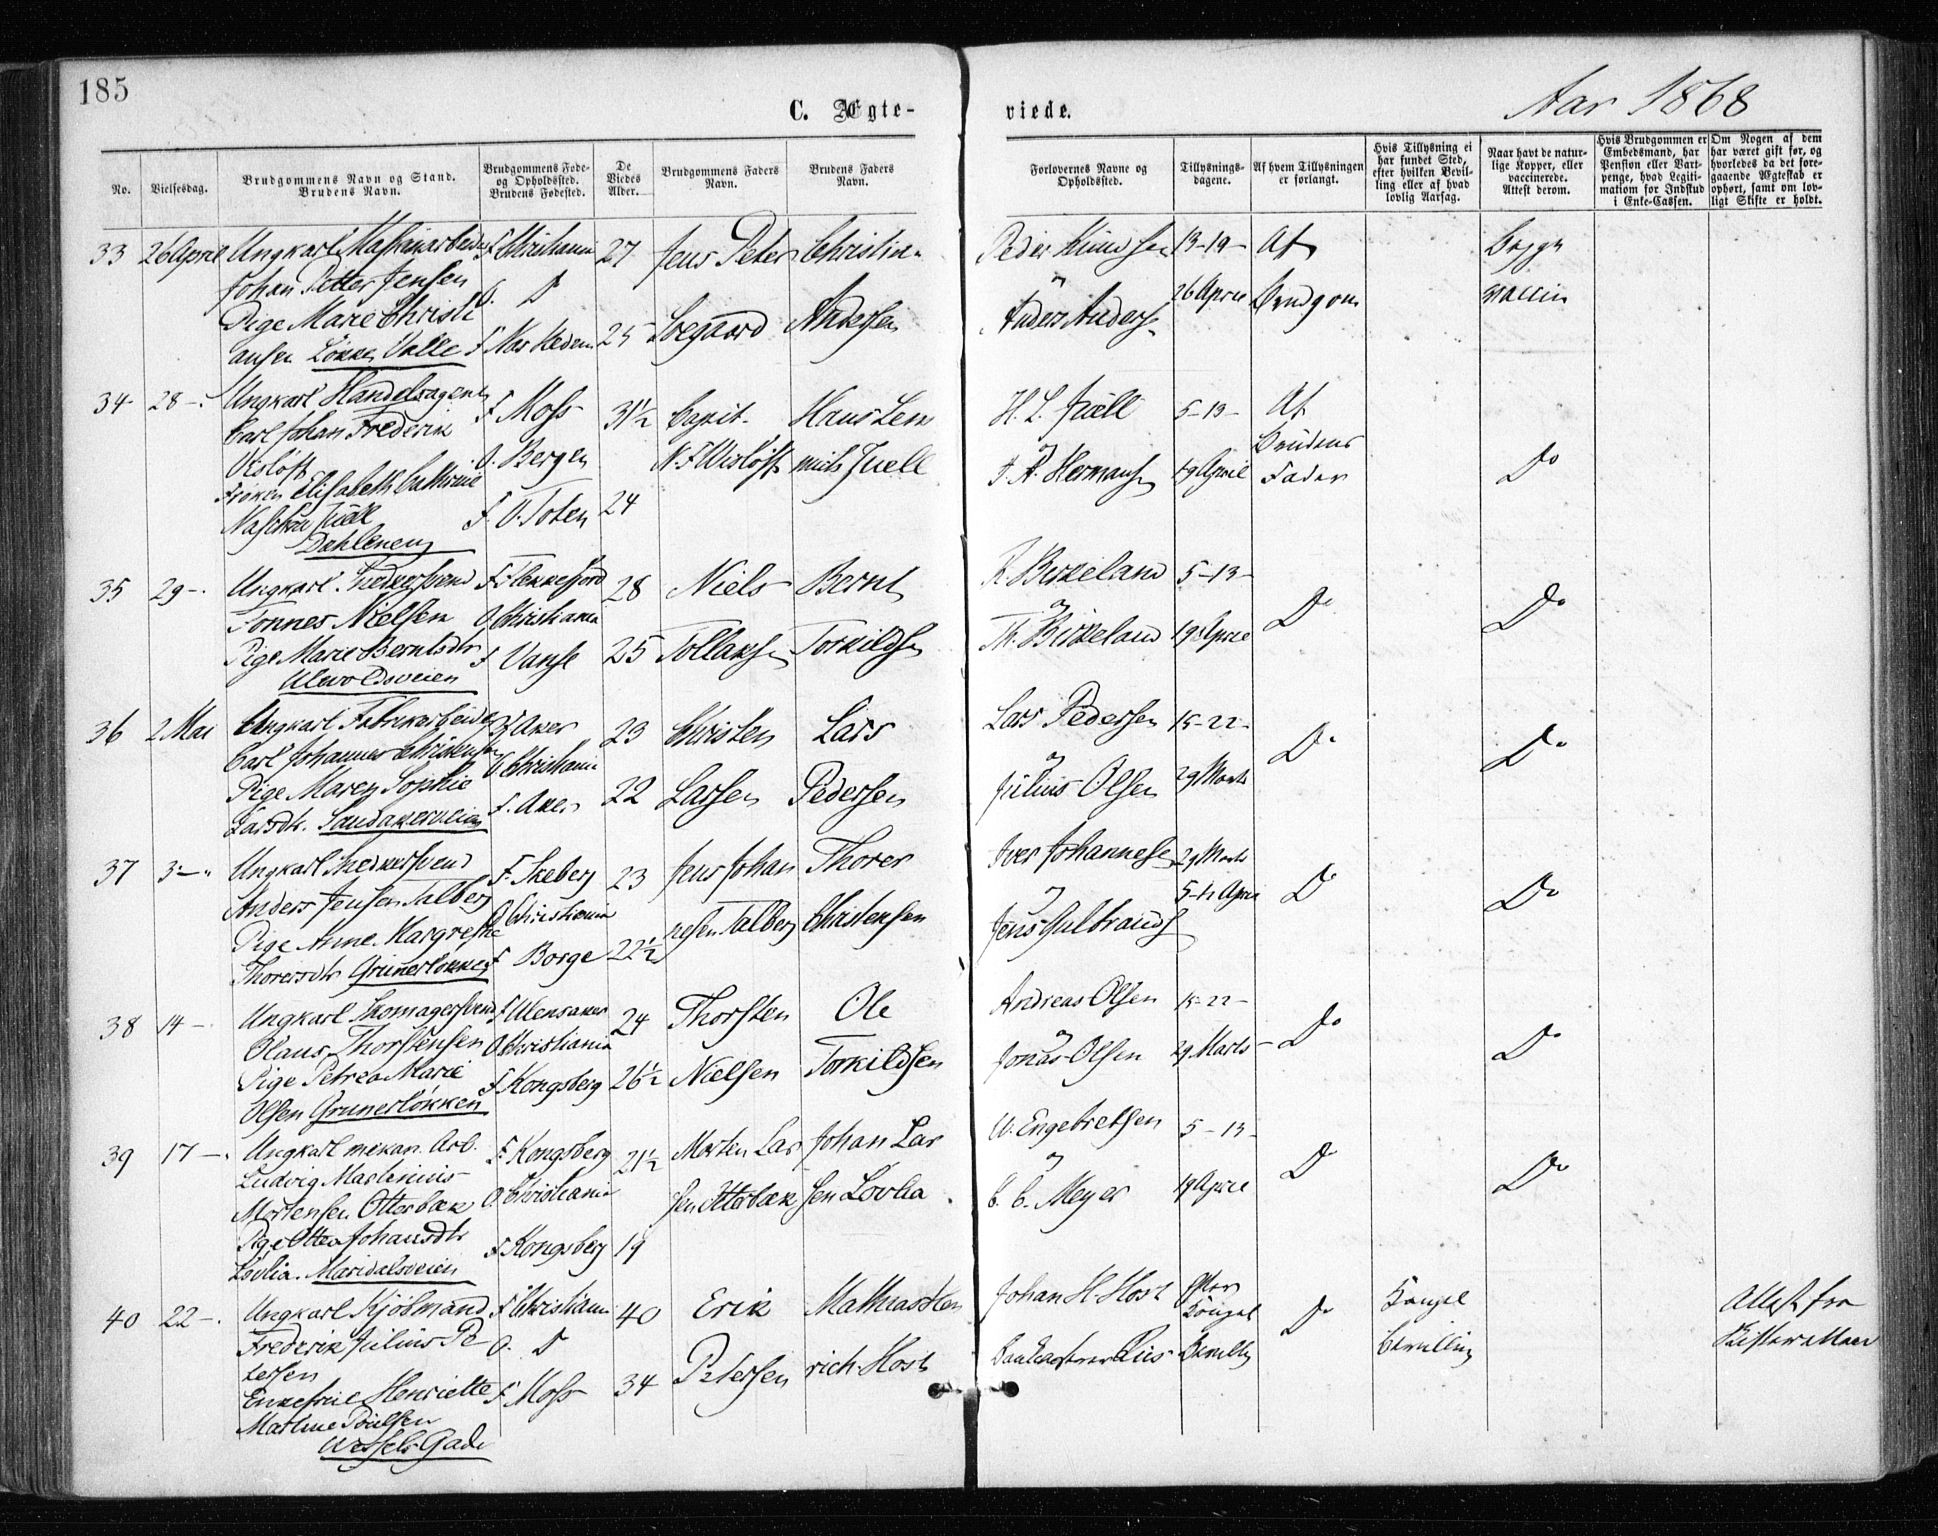 185
C. Ægte-
viede.
Aar 1868
No.
Vielsesdag.
Brudgommens Navn og Stand.
Brudens Navn.
Brudgommens Føde-
og Opholdssted.
Brudens Fødested.
De
Viedes
Alder.
Brudgommens Faders
Navn.
Brudens Faders
Navn.
Forlovernes Navne og
Opholdssted.
Tillysnings-
dagene.
Af hvem Tillysningen
er forlangt.
Hvis Tillysning ei
har fundet Sted,
efter hvilken Bevil-
ling eller af hvad
lovlig Aarsag.
Naar havt de natur-
lige Kopper, eller
vaccinerede.
Attest derom.
Hvis Brudgommen er
Embedsmand, har
Pension eller Vart-
penge, hvad Legiti-
mation for Indskud
i Enke-Cassen.
Om Nogen af dem
har været gift før, og
hvorledes da det fore-
gaaende Ægteskab er
ophørt, samt om lov-
ligt Skifte er holdt.
33 26 April
Ungkarl Maskinarbeider
Johan Petter Jensen
Pige Marie Christi
ansen Løkken Valle
F Christiania
O. D
27
25
Jens Peter
Christian
Andersen
Peder Knudsen
Anders Anders
13-19-
26 April
Af
Brudgom
Begge
vaccin
34 28 -
Ungkarl Handelsagent
Carl Johan Frederik
Wisløff
Frøken Elisabeth Cathrine
Juell
F Moss
O. Bergen
F. V. Toten
31½
24
Capit.
N. F Wisløff
Hans Lem
mich Juell
H. L. Juell
og
Hermansen
5-13-
19 April
Af
Brudens
Fader
Do
35 29 -
Ungkarl Snedkersvend
Tønnes Nielsen
Pige Marie Berntsdtr
Ulevoldsveien
F Flekkefjord
O Christiania
F Vanse
28
25
Niels
Tollaksen
Bernt
Torkildsen
R. Birkeland
og
Th. Birkeland
5-13-
19 April
Do
Do
36 2 Mai
Ungkarl Fabrikarbeider
Carl Johannes Christensen
Pige Maren Sophie
Larsdtr. Sandakerveien
F Aker
O Christiania
F. Aker
23
22
Christen
Larsen
Lars
Pedersen
Lars Pedersen
og
Julius Olsen
15-22-
29 Marts
Do
Do
37 3 -
Ungkarl Snedkersvend
Anders Jensen Talberg
Pige Anne Margrethe
Thorersdtr Grünerløkken
F. Skeberg
O Christiania
F Borge
23
22½
Jens Johan
nesen Talberg
Thorer
Christensen
Iver Johannesen
og
Jens Gulbrands
29 Marts
5-12 April
Do
Do
38 14 -
Ungkarl Skomagersvend
Olaus Thorstensen
Pige Petrea Marie
Olsen Grünerløkken
F Ullensaker
O Christiania
F Kongsberg
24
26½
Thorsten
Nielsen
Ole
Torkildsen
Andreas Olsen
og
Jonas Olsen
15-22-
29 Marts
Do
Do
39 17 -
Ungkarl mekan. Arb.
Ludvig Martinius
Mortensen Otterbæk
Pige Otten Johansdtr
Løvlia. Maridalsveien
F. Kongsberg
O. Christiania
F Kongsberg
21½
19
Morten Lar
sen Otterbæk
Johan Lar
sen Løvlia
W. Engebretsen
og
C. C. Meyer
5-13-
19 April
Do
Do
40 22 -
Ungkarl Kjøbmand
Frederik Julius Pe-
tersen
Enkefrue Henriette
Martine Poulsen
Wessels Gade
F Christiania
O. D
F Moss
40
34
Erik
Petersen
Mathias Hen
rich Høst
Johan H. Høst
Riis
Efter
Kongel
Bevilling
Do
Kongel
Bevilling
Attest fra
Skifteretten